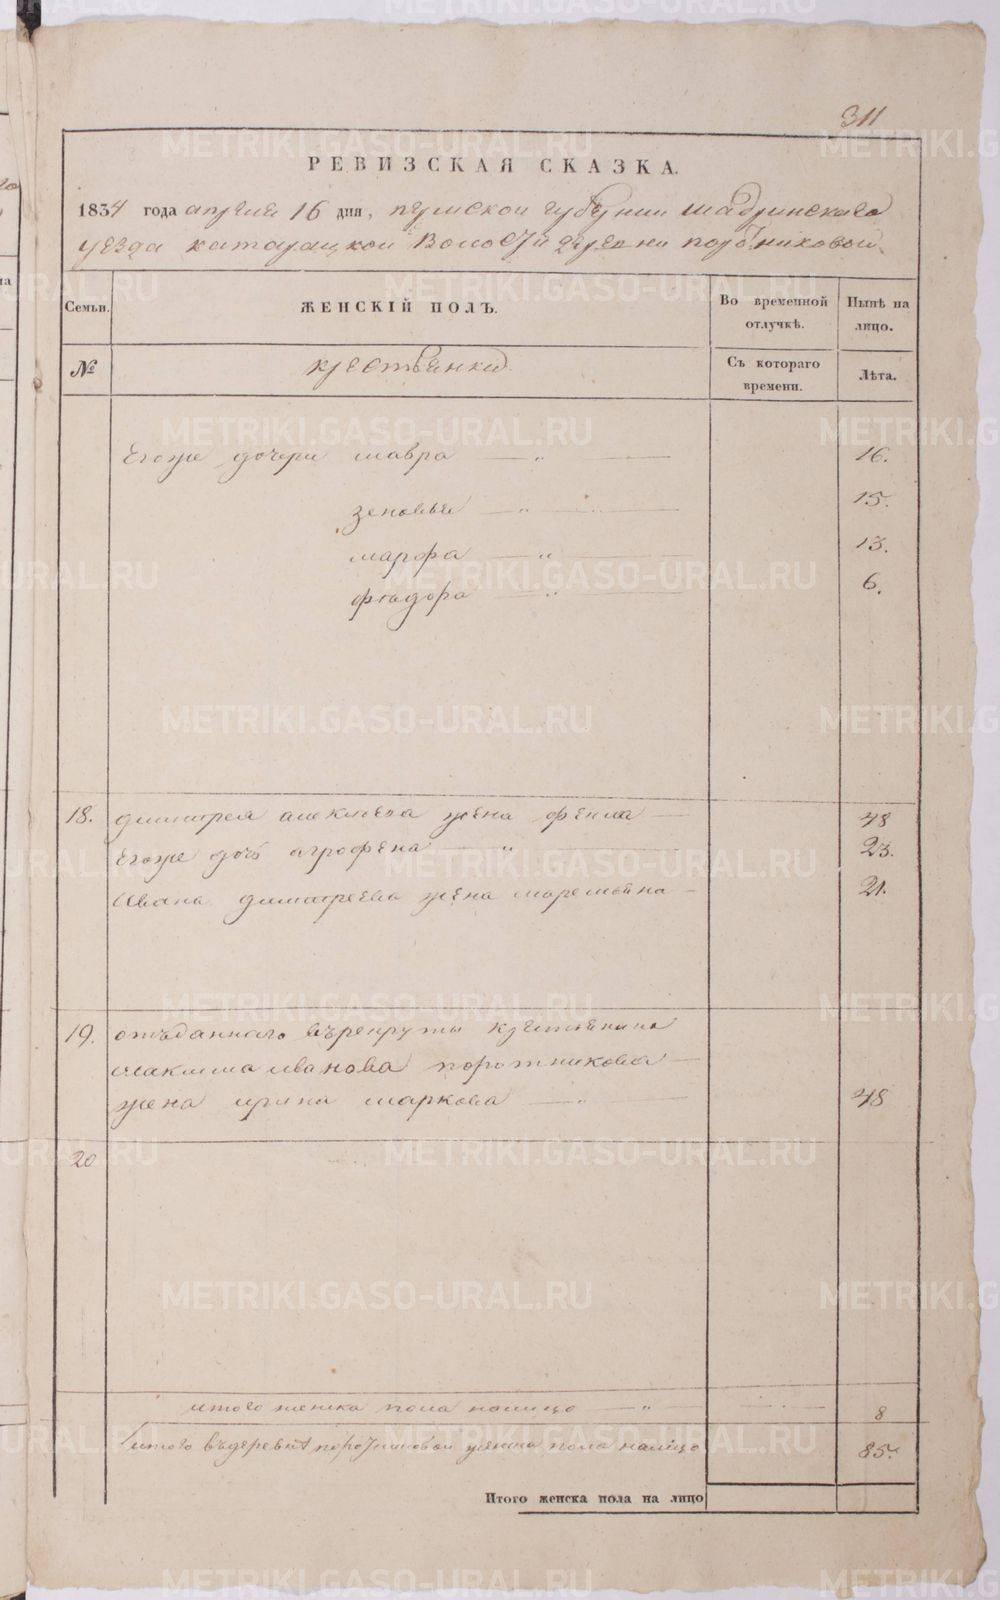 311
РЕВИЗСКАЯ СКАЗКА.
1834 года апреля 16 дня, пермской губернии шадринскаго
уезда катарацкой Волости деревни поротниковой
Семьи. ЖЕНСКІЙ ПОЛЪ. Во временной отлучкѣ. Нынѣ на лицо.
№ крестьянки Съ котораго времени. Лѣта.
Егоже дочери мавра — „ — 16.
зеновья — „ — 15.
марфа — „ — 13.
фѣадора — „ — 6.
18. димитрея алексеева жена фекла — 48
Егоже дочь агрофена — „ — 23.
Ивана димитреева жена маремьяна — 21.
19. отъданнаго върекруты крестьянина
максима иванова поротникова —
жена ирина маркова — „ — 48
20
итого женска пола налицо — „ 8
итого въдеревнѣ поротниковой женска пола налицо 85.
Итого женска пола на лицо
METRIKI.GASO-URAL.RU